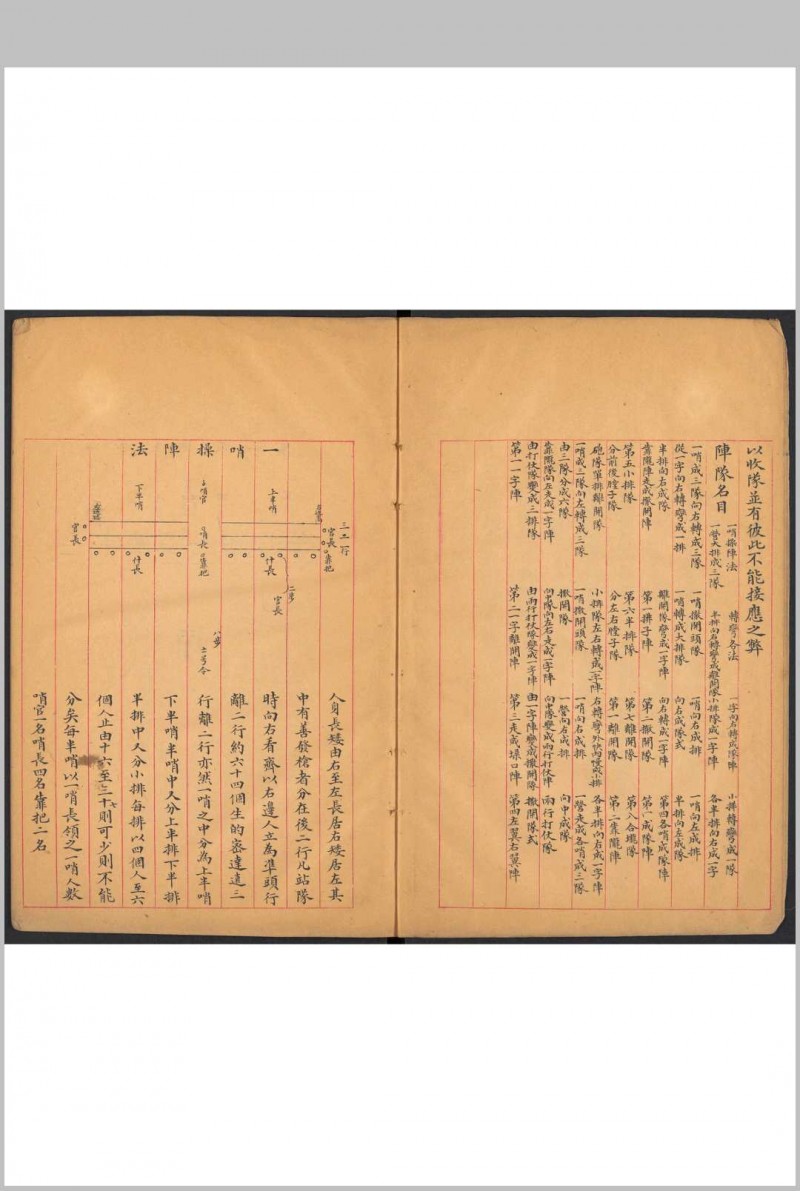 以收隊並有彼此不能接應之弊
陣隊名目
一哨操陣法 轉彎各法 一字向右轉成隊陣 小排轉彎成一隊
一營大排成三隊 半排向右轉彎成離開隊 小排隊成一字陣 各半排向右成一字
一哨成三隊向右轉成三隊 一哨撒開頭隊 一哨向右成排 一哨向左成排
從一字向右轉彎成一排 一哨轉成大排隊 向右成隊式 半排向左成隊
半排向右成隊 離開隊彎成一字陣 向右轉成一字陣 第四各哨成隊陣
靠隴陣走成撒開陣 第一拼子陣 第二撒開陣 第一成隊陣
第五小排隊 第六半排隊 第七離開隊 第八合攏隊
分前後膛子隊 分左右膛子隊 第一離開隊 第二靠隴陣
砲隊單排離開隊 小排隊左右轉成一字陣 右轉彎外快內慢成小排 各半排向右成一字陣
一哨成三隊向左轉成三隊 一哨撒開頭隊 一哨向右成排 一營走成各哨成三隊
由三隊分成六隊 撒開隊 一營向右成排 向中成隊
靠隴隊向左走成一字陣 向中隊向左右走成一字陣 向中隊變成兩行打伏陣 兩行打伏隊
由打伏隊變成三排隊 由兩行打伏隊變成一字陣 由一字陣變成撒開隊 撒開隊式
第一一字陣 第二一字離開陣 第三走成垻口陣 第四左翼右翼陣
一哨操陣法
三二一行
官長 靠把
上半哨
什長
二灣
官長
哨官
哨長 靠把
八步
号令
下半哨
什長
官長
人身長矮由右至左長居右矮居左其
中有善發槍者分在後二行凡站隊
時向右看齊以右邊人立為準頭行
離二行約六十四個生的密達遠二
行離二行亦然一哨之中分為上半哨
下半哨半哨中又分上半排下半排
半排中又分小排每排以四個人至六
個人止由十六至二十七則可少則不能
分矣每半哨以一哨長領之一哨人數
哨官一名哨長四名靠把二名